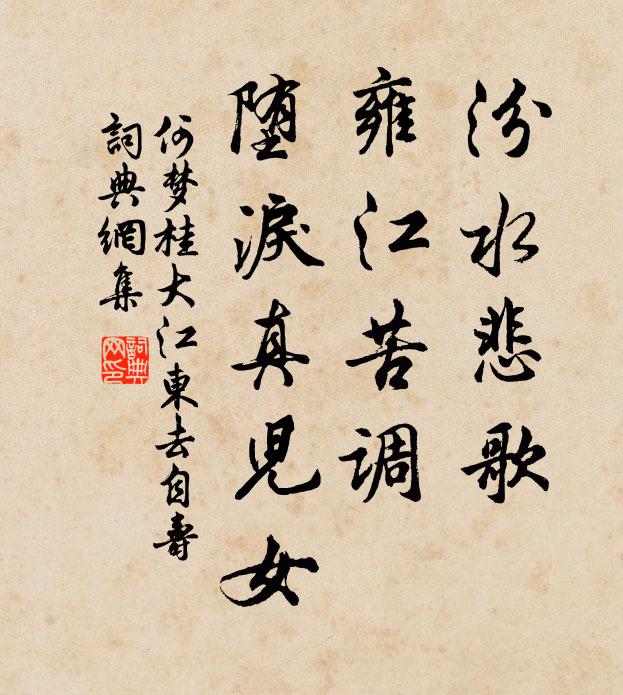 汾水悲歌
雍江苦调
堕淚真児女
何梦桂大江東去自壽
詞典網集
詞典
网印